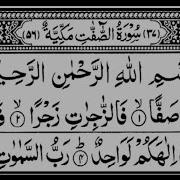 (۳۷) سُوْرَةُ الصّٰٓفّٰتِ مَكِّيَّةٌ (۵۶)
سْمِ اللهِ الرَّحْمٰنِ الرَّحِيْ
صَفًّا ۙ﴿۱﴾ فَالزّٰجِرٰتِ زَجْرًا ۙ﴿۲﴾
اِلٰهَكُمْ لَوَاحِدٌ ؕ﴿۴﴾ رَبُّ السَّمٰوٰتِ